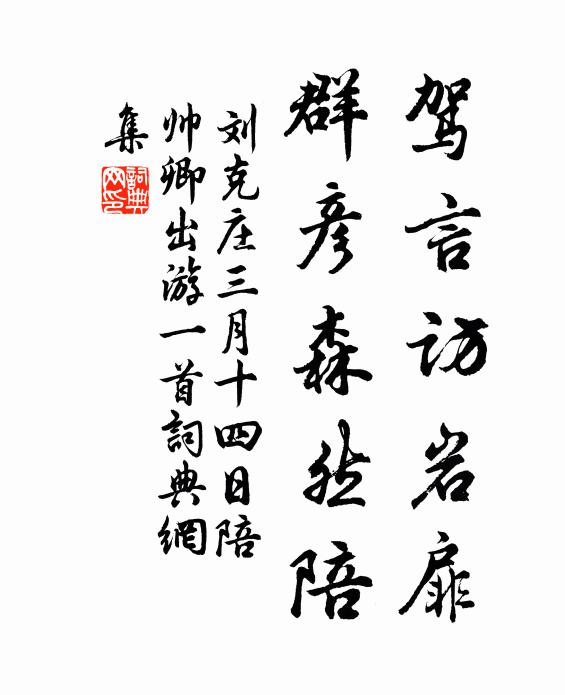 驾言访岩扉
群彦森然陪
刘克庄三月十四日陪
帅卿出游一首詞典網
集
詞典
网印